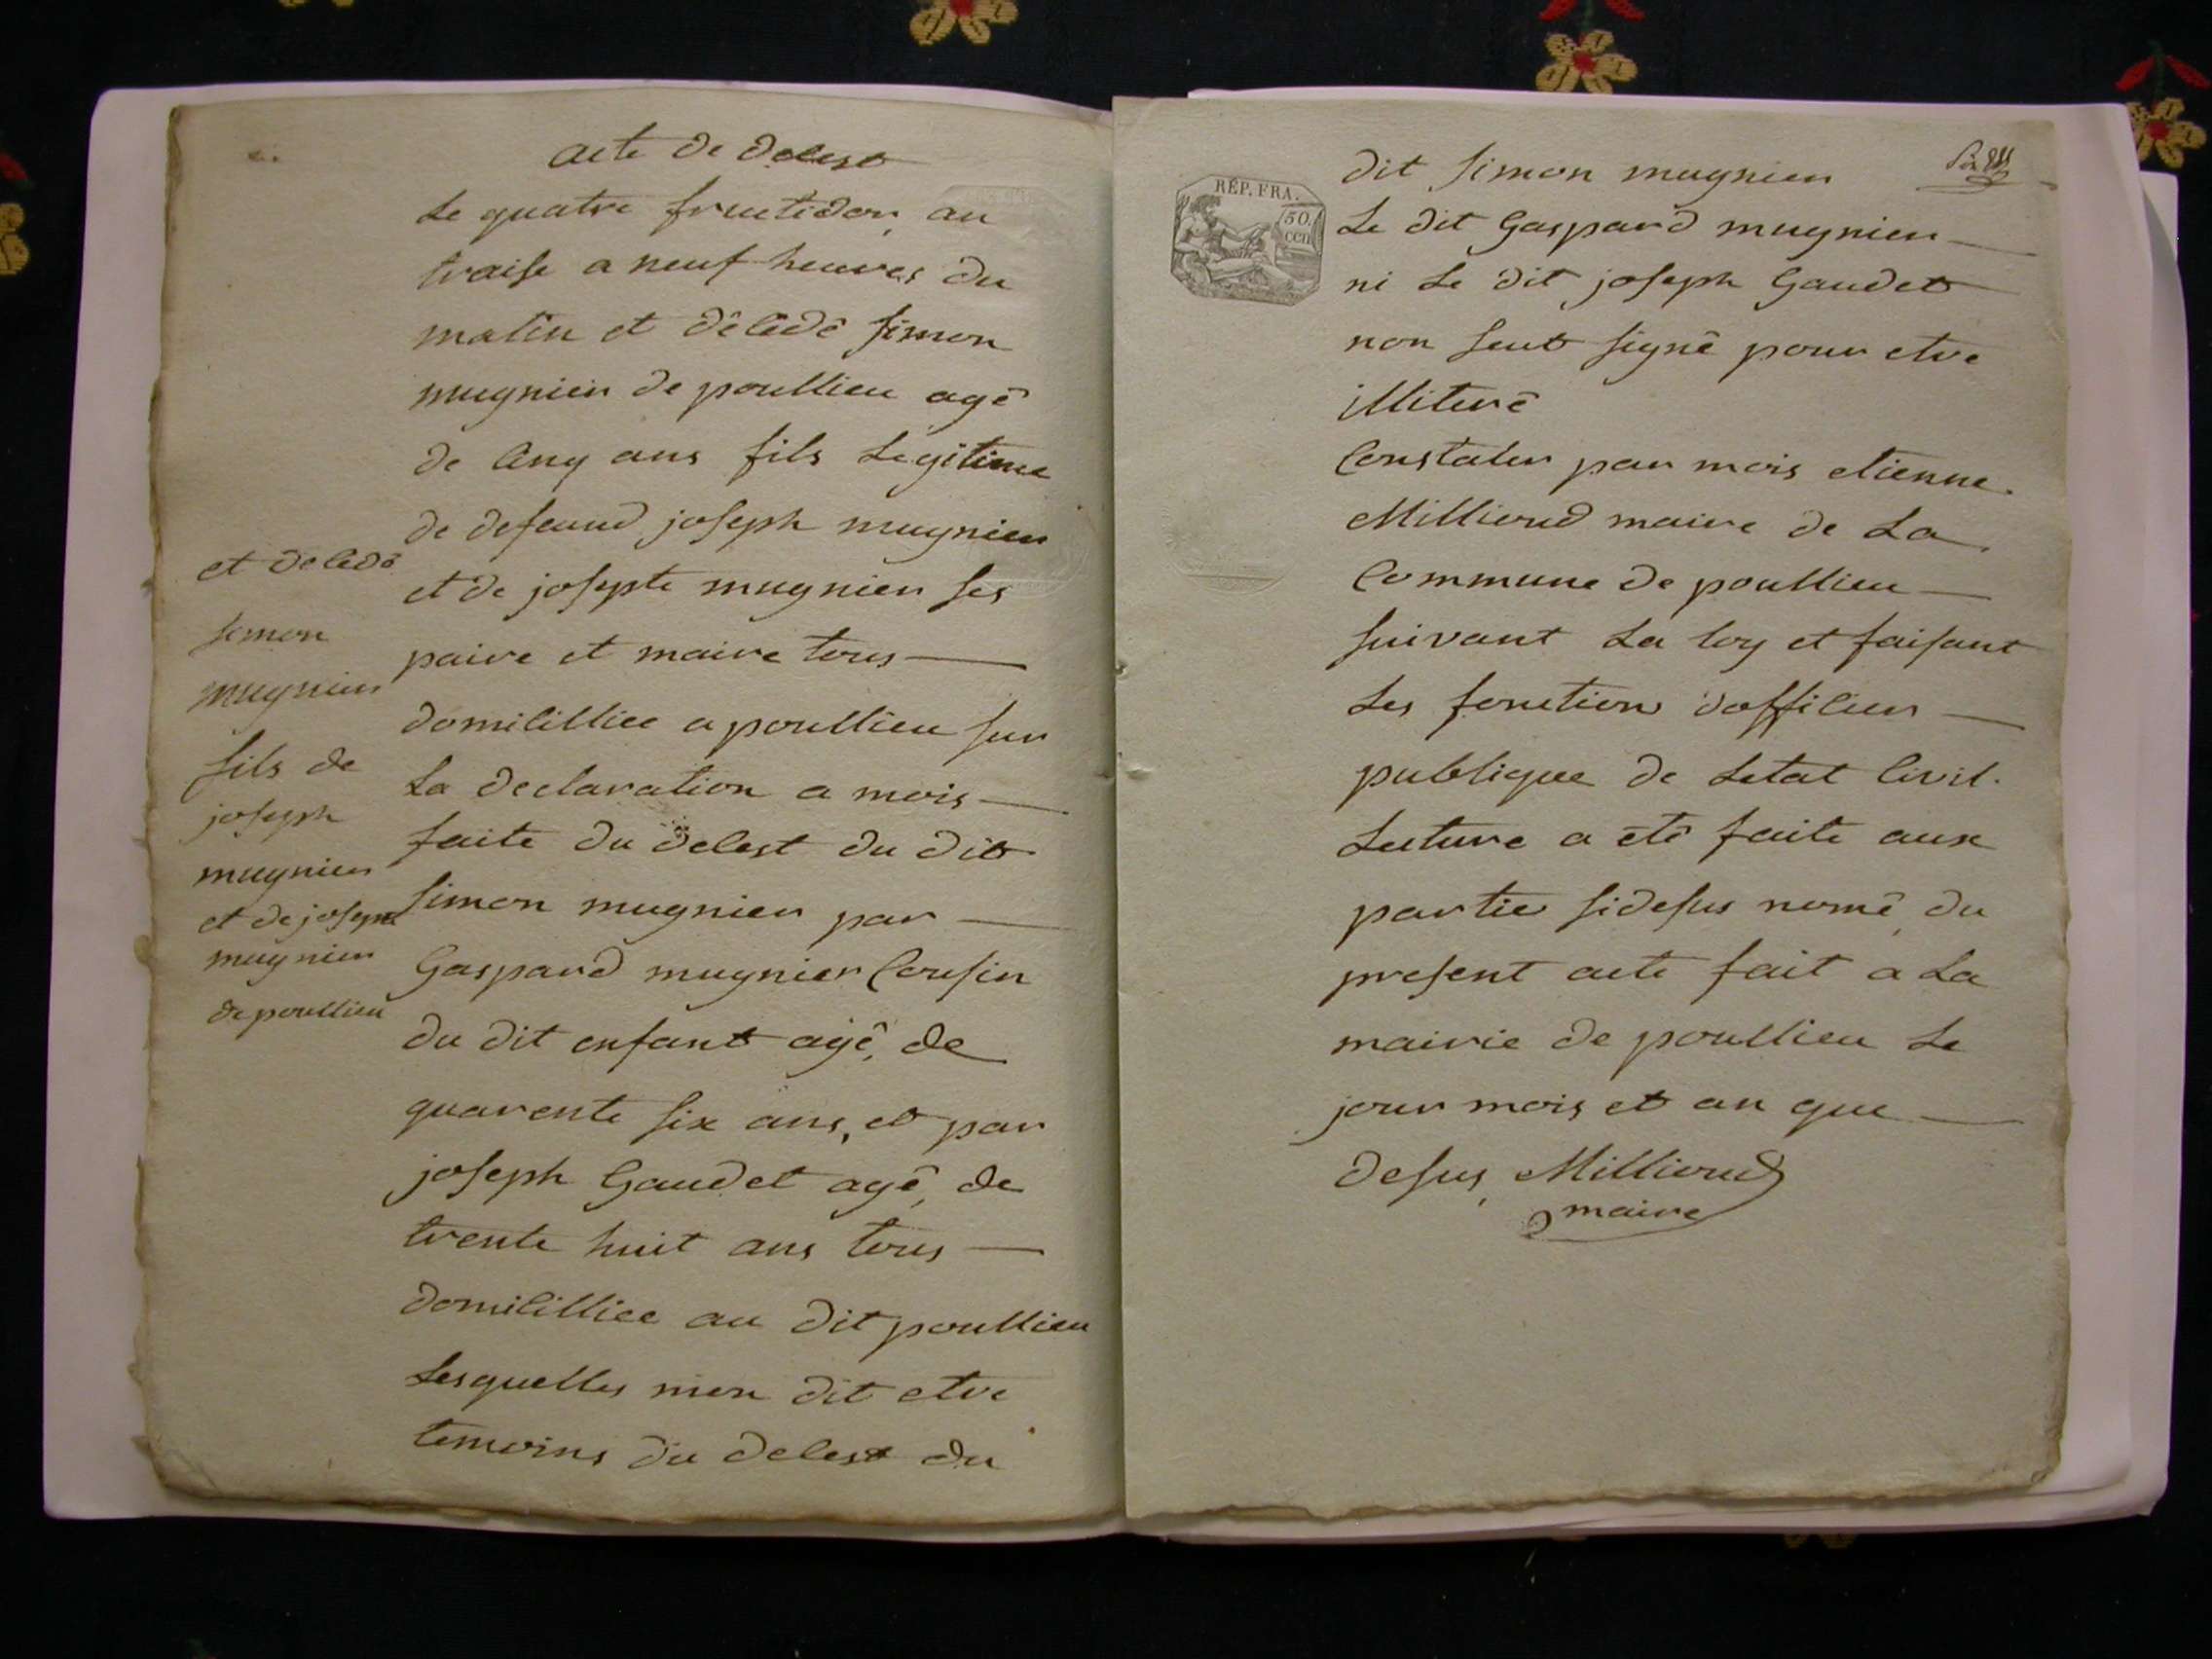 acte de delest
Le quatre fructidor, an
traise a neuf heures du
matin et dêcédê simon
mugnier de poullieu agê
de cinq ans fils Legitime
de defeund joseph mugnier
et de josepte mugnier ses
paire et maire tous
domicilliee a poullieu sur
La declaration a mois
faite du delest du dit
simon mugnier par
Gaspard mugnier Cousin
du dit enfant agê, de
quarente six ans, et par
joseph Gaudet agê, de
trente huit ans tous
domicilliee au dit poullieu
Lesquelles mon dit etre
temoins du delest du
et decedê
simon
mugnier
fils de
joseph
mugnier
et de josepte
mugnier
de poullieu
RÉP. FRA.
50
cen
dit simon mugnier
Le dit Gaspard mugnier
ni Le dit joseph Gaudet
non seut signê pour etre
illiterê
Constater par mois etienne
Millioud maire de La
Commune de poullieu
suivant La loy et faisant
Les fonction dofficier
publique de Letat Civil.
Lecture a êtê faite aux
partie sidesus nomê du
present acte fait a La
mairie de poullieu Le
jour mois et an que
desus, Millioud
maire